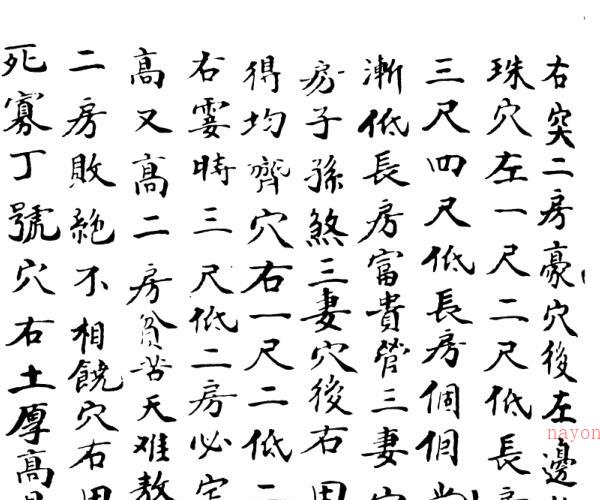 右突二房豪穴後左邊
珠穴左一尺二尺低長房
三尺四尺低長房個個
漸低長房富貴管三妻
房子孫煞三妻穴後右
得均齊穴右一尺二低二
右霎時三尺低二房必定
高又高二房貧苦天难教
二房敗絕不相饒穴右
死寡丁號穴右土厚高
nayon